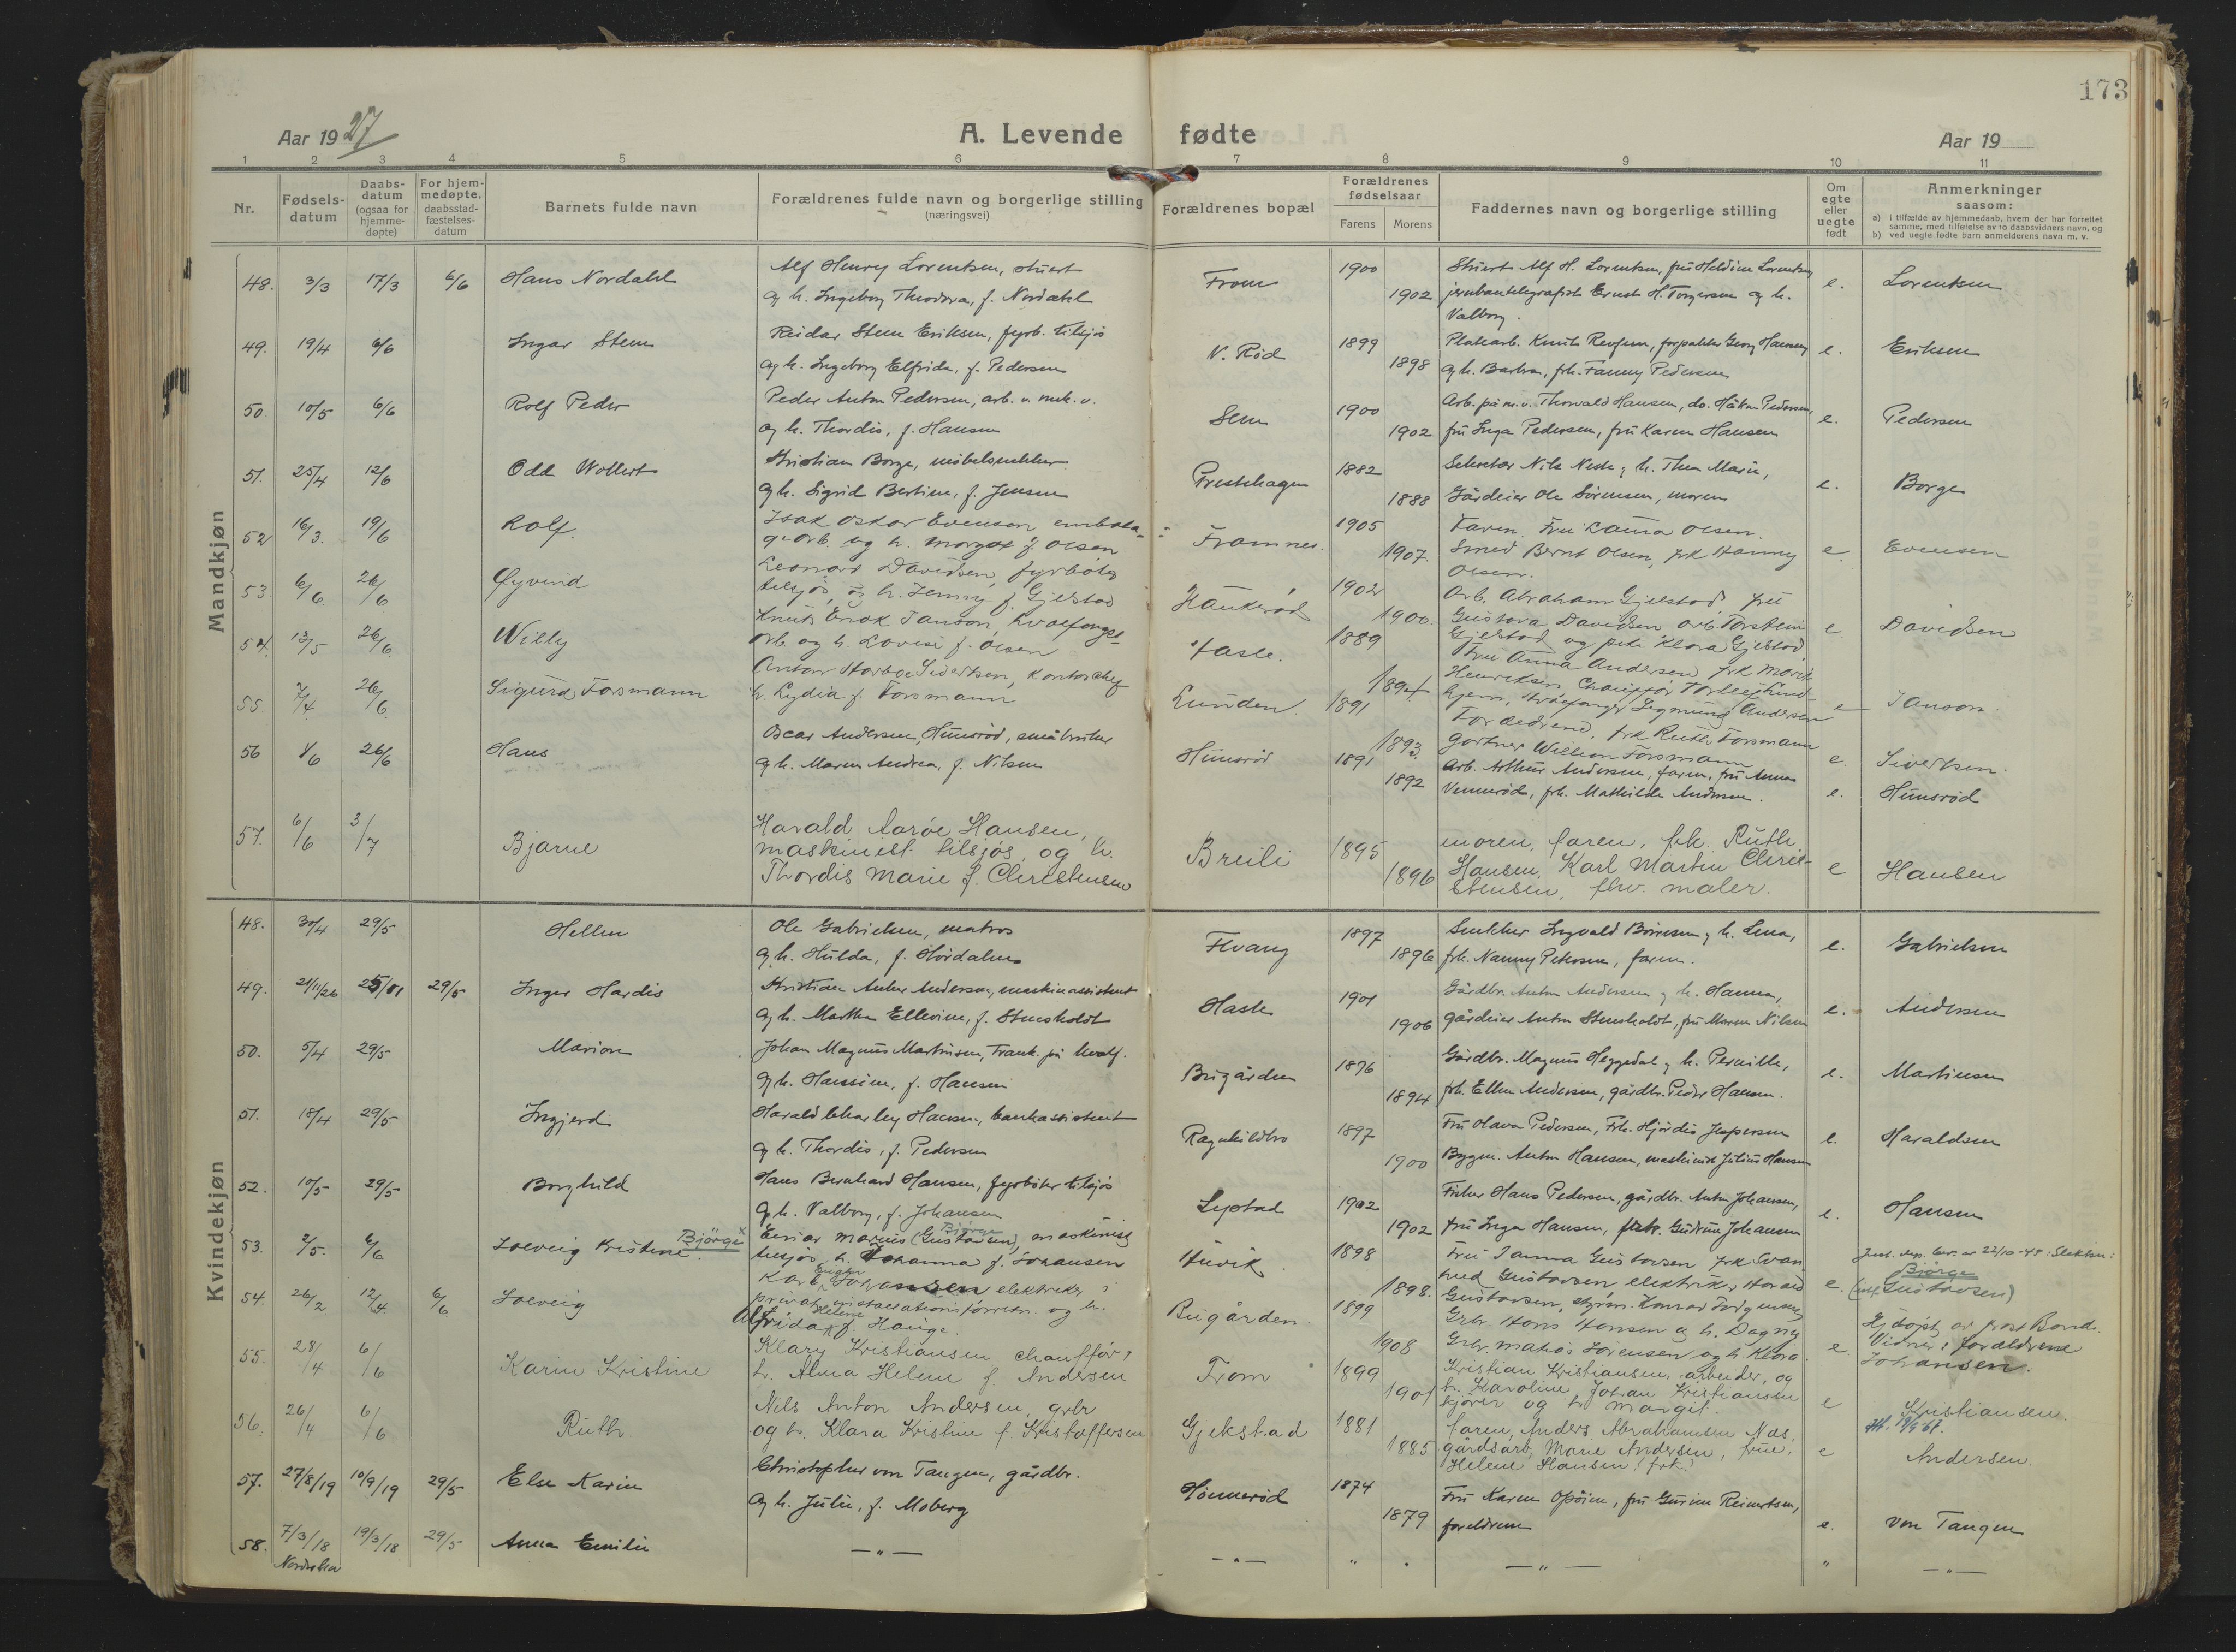 173
Aar 1927
A. Levende fødte
Aar 19
1 2 3 4 5 6 7 8 9 10 11
Nr.
Fødsels-
datum
Daabs-
datum
(ogsaa for
hjemme-
døpte)
For hjem-
medøpte,
daabsstad-
fæstelses-
datum
Barnets fulde navn
Forældrenes fulde navn og borgerlige stilling
(næringsvei)
Forældrenes bopæl
Forældrenes
fødselsaar
Farens Morens
Faddernes navn og borgerlige stilling
Om
egte
eller
uegte
født
Anmerkninger
saasom:
a) i tilfælde av hjemmedaab, hvem der har forrettet
samme, med tilføielse av to daabsvidners navn, og
b) ved uegte fødte barn anmelderens navn m. v.
Mandkjøn
48. 3/3 17/3 6/6 Hans Nordahl Alf Henry Lorentsen, stuert From 1900 Stuert Alf H. Lorentsen, fru e. Lorentsen
og h. Ingeborg Theodora, f. Nordahl 1902 jernbanetelegrafist Ernst H. Torgersen og h.
Valborg.
49. 19/4 6/6 Ingar Stem Reidar Stem Eriksen, fyrb. tilsjøs N. Rød 1899 Platearb. Knut forpakter Georg Hansen e. Eriksen
og h. Ingeborg Elfrida, f. Pedersen 1898 og h. Barbra, frk. Fanny Pedersen
50. 10/5 6/6 Rolf Peder Peder Anton Pedersen, arb. v. mek. v. Sem 1900 Arb. på m.v. Thorvald Hansen, do. Håkon Pedersen, e. Pedersen
og h. Thordis, f. Hansen 1902 fru Inga Pedersen, fru Karen Hansen
51. 25/4 12/6 Odd Wollert Kristian Borge, møbelsnekker Prestehagen 1882 Sekretær Nils og h. Thea Marie, e. Borge
og h. Sigrid Bertine, f. Jensen 1888 Gårdeier Ole Sørensen, moren
52 16/3. 19/6 Rolf. Isak Oskar Evensen emballa- Framnes. 1905 Faren. Fru Laura Olsen. e Evensen
ge arb. og h. Margot f. Olsen 1907. Smed Bernt Olsen, frk Hanny
Olsen.
53 6/6 26/6 Øyvind Leonard Davidsen, fyrbøter Haukerød 1902 Arb. Abraham Gjelstad, fru e Davidsen
tilsjøs, og h. Jenny f. Gjelstad 1900. Gustava Davidsen arb. Torstein
Gjelstad og frk Klara Gjelstad
54. 13/5 26/6 Willy Knut Enok Janson, hvalfangst- Hasle. 1889 Fru Anna Andersen frk Marie e Janson.
arb. og h. Lovise f. Olsen 1894 Henriksen, Chauffør
hjem, Sigmund Andersen
55. 7/4 26/6 Sigurd Forsmann Anton Sivertsen, Kontorchef Lunden. 1891 Forældrene, frk Ruth Forsmann e. Sivertsen.
h. Lydia f. Forsmann 1893. Gartner William Forsmann
56 1/6 26/6 Hans Oscar Andersen, Hunsrød, småbruker Hunsrød 1891 Arb. Arthur Andersen, faren, fru Anna e. Hunsrød
og h. Maren Andrea, f. Nilsen 1892 Vennerød, frk. Mathilde Andersen.
57. 6/6 3/7 Bjarne Harald Aarøe Hansen, Breili 1895 moren, faren, frk. Ruth e Hansen
maskinist tilsjøs, og h. 1896 Hansen, Karl Martin Chris-
Thordis Marie f. Christensen stensen, fhv. maler.
Kvindekjøn
48. 30/4 29/5 Hellen Ole Gabrielsen, matros Elvang 1897 Snekker Ingvald og h. Lena, e. Gabrielsen
og h. Hulda, f. Hørdalen 1896 frk. Nanny Petersen, faren.
49. 21/11/26 25/01 29/5 Inger Hardis Kristian Anker Andersen, maskinassistent Hasle 1901 Gårdbr. Anton Andersen og h. Hanna, e. Andersen
og h. Martha Ellevine, f. Stensholdt 1906 gårdeier Anton Stensholdt, fru Maren Nilsen
50. 5/4 29/5 Marion Johan Magnus Martinsen, Trank. på hvalf. Bugården 1896 Gårdbr. Magnus Heggedal og h. Pernille, e. Martinsen
og h. Hanssine, f. Hansen 1894 frk. Ellen Andersen, gårdbr. Peder Hansen.
51. 18/4 29/5 Ingjerd Harald Charley Hansen, bankassistent Ragnhildbro 1897 Fru Olava Pedersen, Frk. Hjørdis Jespersen e. Haraldsen
og h. Thordis, f. Pedersen 1900 Byggm. Anton Hansen, maskinist Julius Hansen
52. 10/5 29/5 Borghild Hans Bernhard Hansen, fyrbøter tilsjøs Lystad 1902 Fisker Hans Pedersen, gårdbr. Anton Johansen, e. Hansen
og h. Valborg, f. Johansen 1902 fru Inga Hansen, frk. Gudrun Johansen
53. 2/5. 6/6 Solveig Kristine. Bjørge x Einar Marius (Gustavsen) Bjørge, maskinist Huvik 1898 Fru Janna Gustavsen frk Svan- e. Just. dep. bev. av 22/10-45: Slektsn:
Bjørge
tilsjøs, h. Johanna f. Johansen 1898. hild Gustavsen elektriker Harald (Gustavsen)
Gustavsen, styrm. Konrad Jørgensen
54. 26/2 12/4 6/6 Solveig Karl Johansen elektriker i Bugården 1899 Grbr. Hans Hansen og h. Dagny e. Hj.døpt av prost Bonde.
privat installationsforretn. og h. 1908 Grbr. Matias Sørensen og h. Klara. Vidner: forældrene
Alfrida Helene f. Hauge. Johansen.
55. 28/4 6/6 Karin Kristine Klary Kristiansen chauffør, From 1899 Kristian Kristiansen, arbeider, og e Kristiansen.
h. Alma Helene f. Andersen 1901 h. Karoline, Johan Kristiansen
kjører og h. Margit.
56. 26/4 6/6 Ruth Nils Anton Andersen, grbr Gjekstad 1881 faren, Anders Abrahamsen Næs, e Andersen.
og h. Klara Kristine f. Kristoffersen 1885 gårdsarb, Marie Andersen, frue,
Helene Hansen, frk.
57. 27/8/19 10/9/19 29/5 Else Karin Christopher von Tangen, gårdbr. Hønnerød 1874 Fru Karen Opsien, fru Gusine Reinertsen, e. von Tangen
og h. Julie, f. Moberg 1879 foreldrene
58. 7/3/18 19/3/18 29/5 Anna Emilie —"— —"— " " —"— " —"—